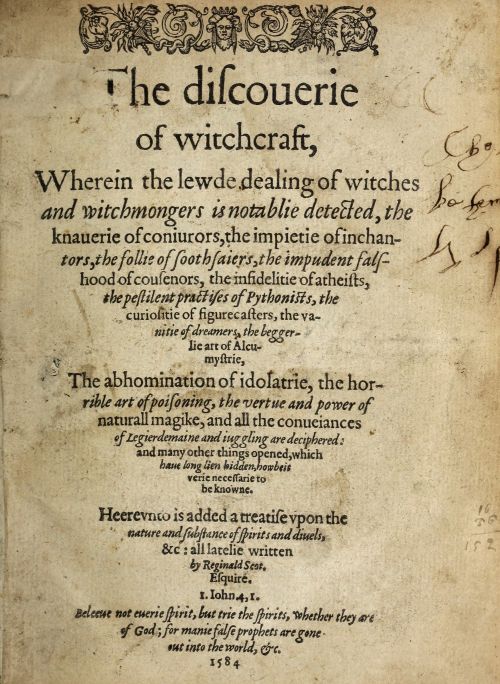 The diſcouerie
of witchcraft,
Wherein the lewde dealing of witches
and witchmongers is notablie detected, the
knauerie of coniurors, the impietie of inchan-
tors, the follie of ſoothſaiers, the impudent falſ-
hood of couſenors, the infidelitie of atheiſts,
the peſtilent practiſes of Pythoniſts, the
curioſitie of figurecaſters, the va-
nitie of dreamers, the begger-
lie art of Alcu-
myſtrie,
The abhomination of idolatrie, the hor-
rible art of poiſoning, the vertue and power of
naturall magike, and all the conueiances
of Legierdemaine and iuggling are deciphered:
and many other things opened, which
haue long lien hidden, howbeit
verie neceſſarie to
be knowne.
Heerevnto is added a treatiſe vpon the
nature and ſubſtance of ſpirits and diuels,
&c: all latelie written
by Reginald Scot.
Eſquire.
1. Iohn. 4, 1.
Beleeue not euerie ſpirit, but trie the ſpirits, whether they are
of God; for manie falſe prophets are gone
out into the world, &c.
1584